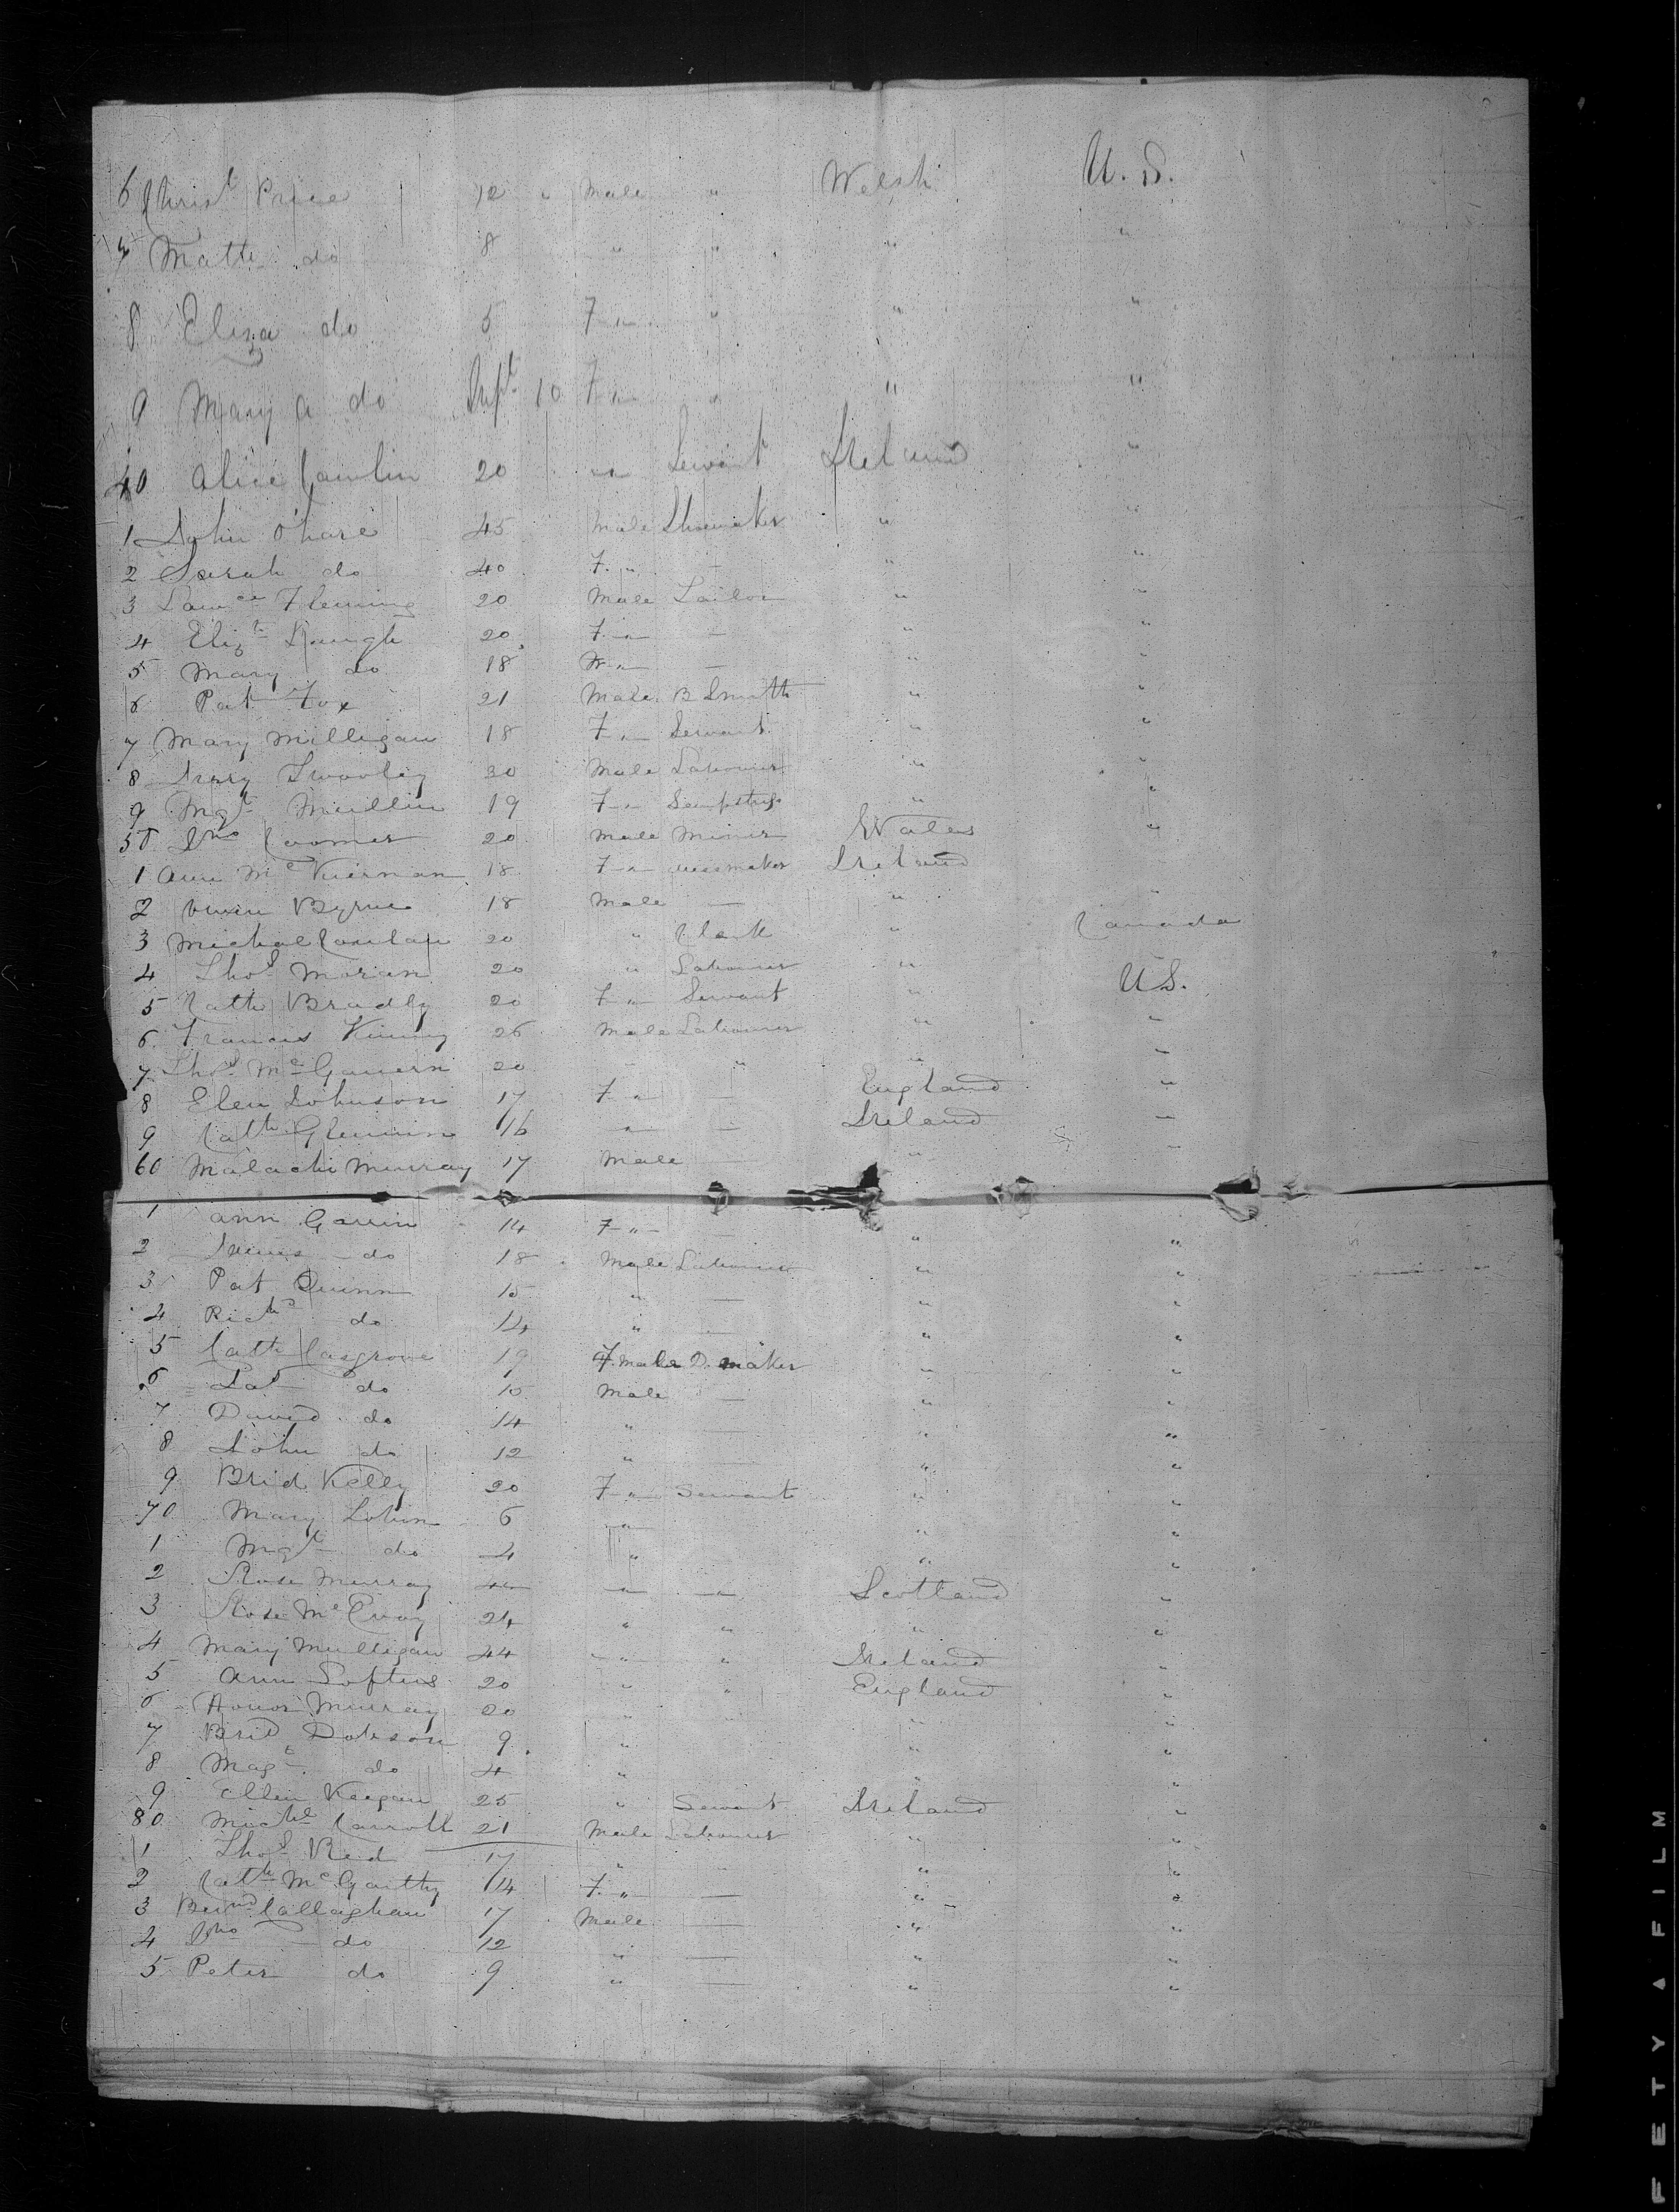 6 Christ Price 12 " Male " Welsh U.S.
7 Matth do 8 " " " "
8 Eliza do 5 F " " " "
9 Mary A do 10 F " " " "
40 Alice 20 " Servant Ireland "
1 John O'hare 45 Male Shoemaker " "
2 Sarah do 40 F. " — " "
3 Lawce Fleming 20 Male Tailor " "
4 Elizth 20 F " — " "
5 Mary do 18 " — " "
6 Pat Fox 21 Male B Smith " "
7 Mary Milligan 18 F " Servant " "
8 30 Male Labourer " "
9 Mgt Mullin 19 F " Sempstress " "
50 Jno Coomer 20 Male Miner Wales "
1 Ann Mc Kiernan 18 F " dressmaker Ireland "
2 Owen Byrne 18 Male — " "
3 Michael 20 " Clerk " Canada
4 Thos Moran 20 " Labourer " U.S.
5 Cath Bradly 20 F " Servant " "
6 Francis Kinny 26 Male Labourer " "
7 Thos Mc Gauern 20 " " " "
8 Elen Johnson 17 F " — England "
9 Cath 16 " — Ireland "
60 Malachi Murray 17 Male — " "
1 Ann Gavin 14 F " — " "
2 James do 18 Male Labourer " "
3 Pat Quinn 15 " — " "
4 Richd do 14 " — " "
5 Cath Casgrove 19 Female D. maker " "
6 Pat do 15 Male — " "
7 David do 14 " — " "
8 John do 12 " — " "
9 Brid Kelly 20 F " Servant " "
70 Mary 6 " " "
1 Mgt do 4 " " "
2 Rose Murray " " Scotland "
3 Rose Mc Evoy 24 " " " "
4 Mary Mulligan 44 " " Ireland "
5 Ann Loftus 20 " " England "
6 Honor Murray 20 " " " "
7 Brid Dobson 9 " " "
8 Magt do 4 " " "
9 Ellen Keegan 25 " Servant Ireland "
80 Michl Carroll 21 Male Labourer " "
1 Thos Reid 17 " — " "
2 Cath Mc Garthy 14 F. " — " "
3 Bernd Callaghan 17 Male — " "
4 Jno do 12 " — " "
5 Peter do 9 " — " "
FETY ▲ FILM